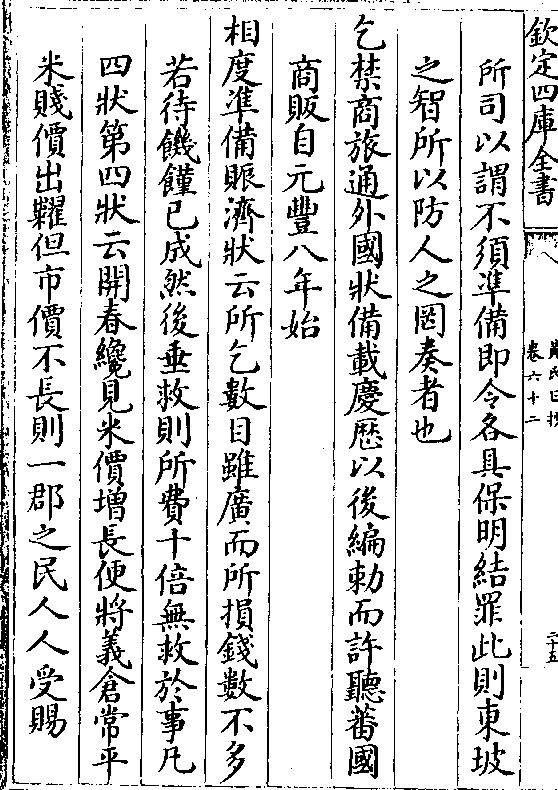 欽定四庫全書
黃氏日抄
卷六十二
三十五
所司以謂不須準備即令各具保明結罪此則東坡
之智所以防人之罔奏者也
乞禁商旅通外國狀備載慶歷以後編勅而許聽蕃國
商販自元豐八年始
相度準備賑濟狀云所乞數目雖廣而所損錢數不多
若待饑饉已成然後垂救則所費十倍無救於事凡
四狀第四狀云開春纔見米價增長便將義倉常平
米賤價出糶但市價不長則一郡之民人人受賜